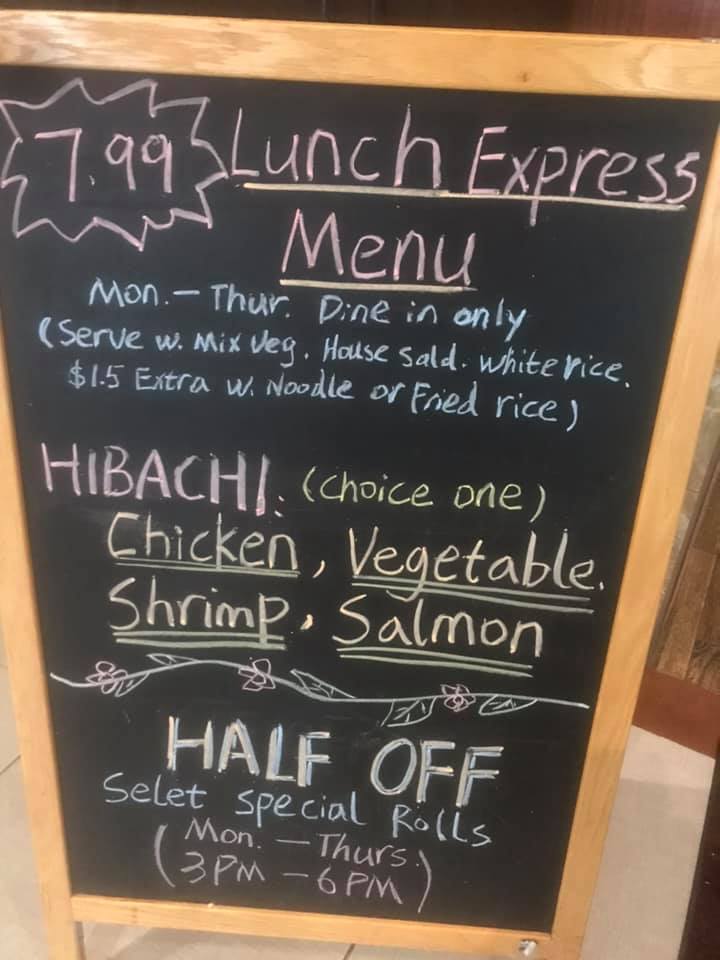 7.99 Lunch Express
Menu
Mon. – Thur. Dine in only
(Serve w. Mix Veg. House Sald. White rice.
$1.5 Extra w. Noodle or Fried rice)
HIBACHI. (Choice one)
Chicken, Vegetable.
Shrimp, Salmon
HALF OFF
Selet Special Rolls
(Mon. – Thurs.
3PM – 6PM)